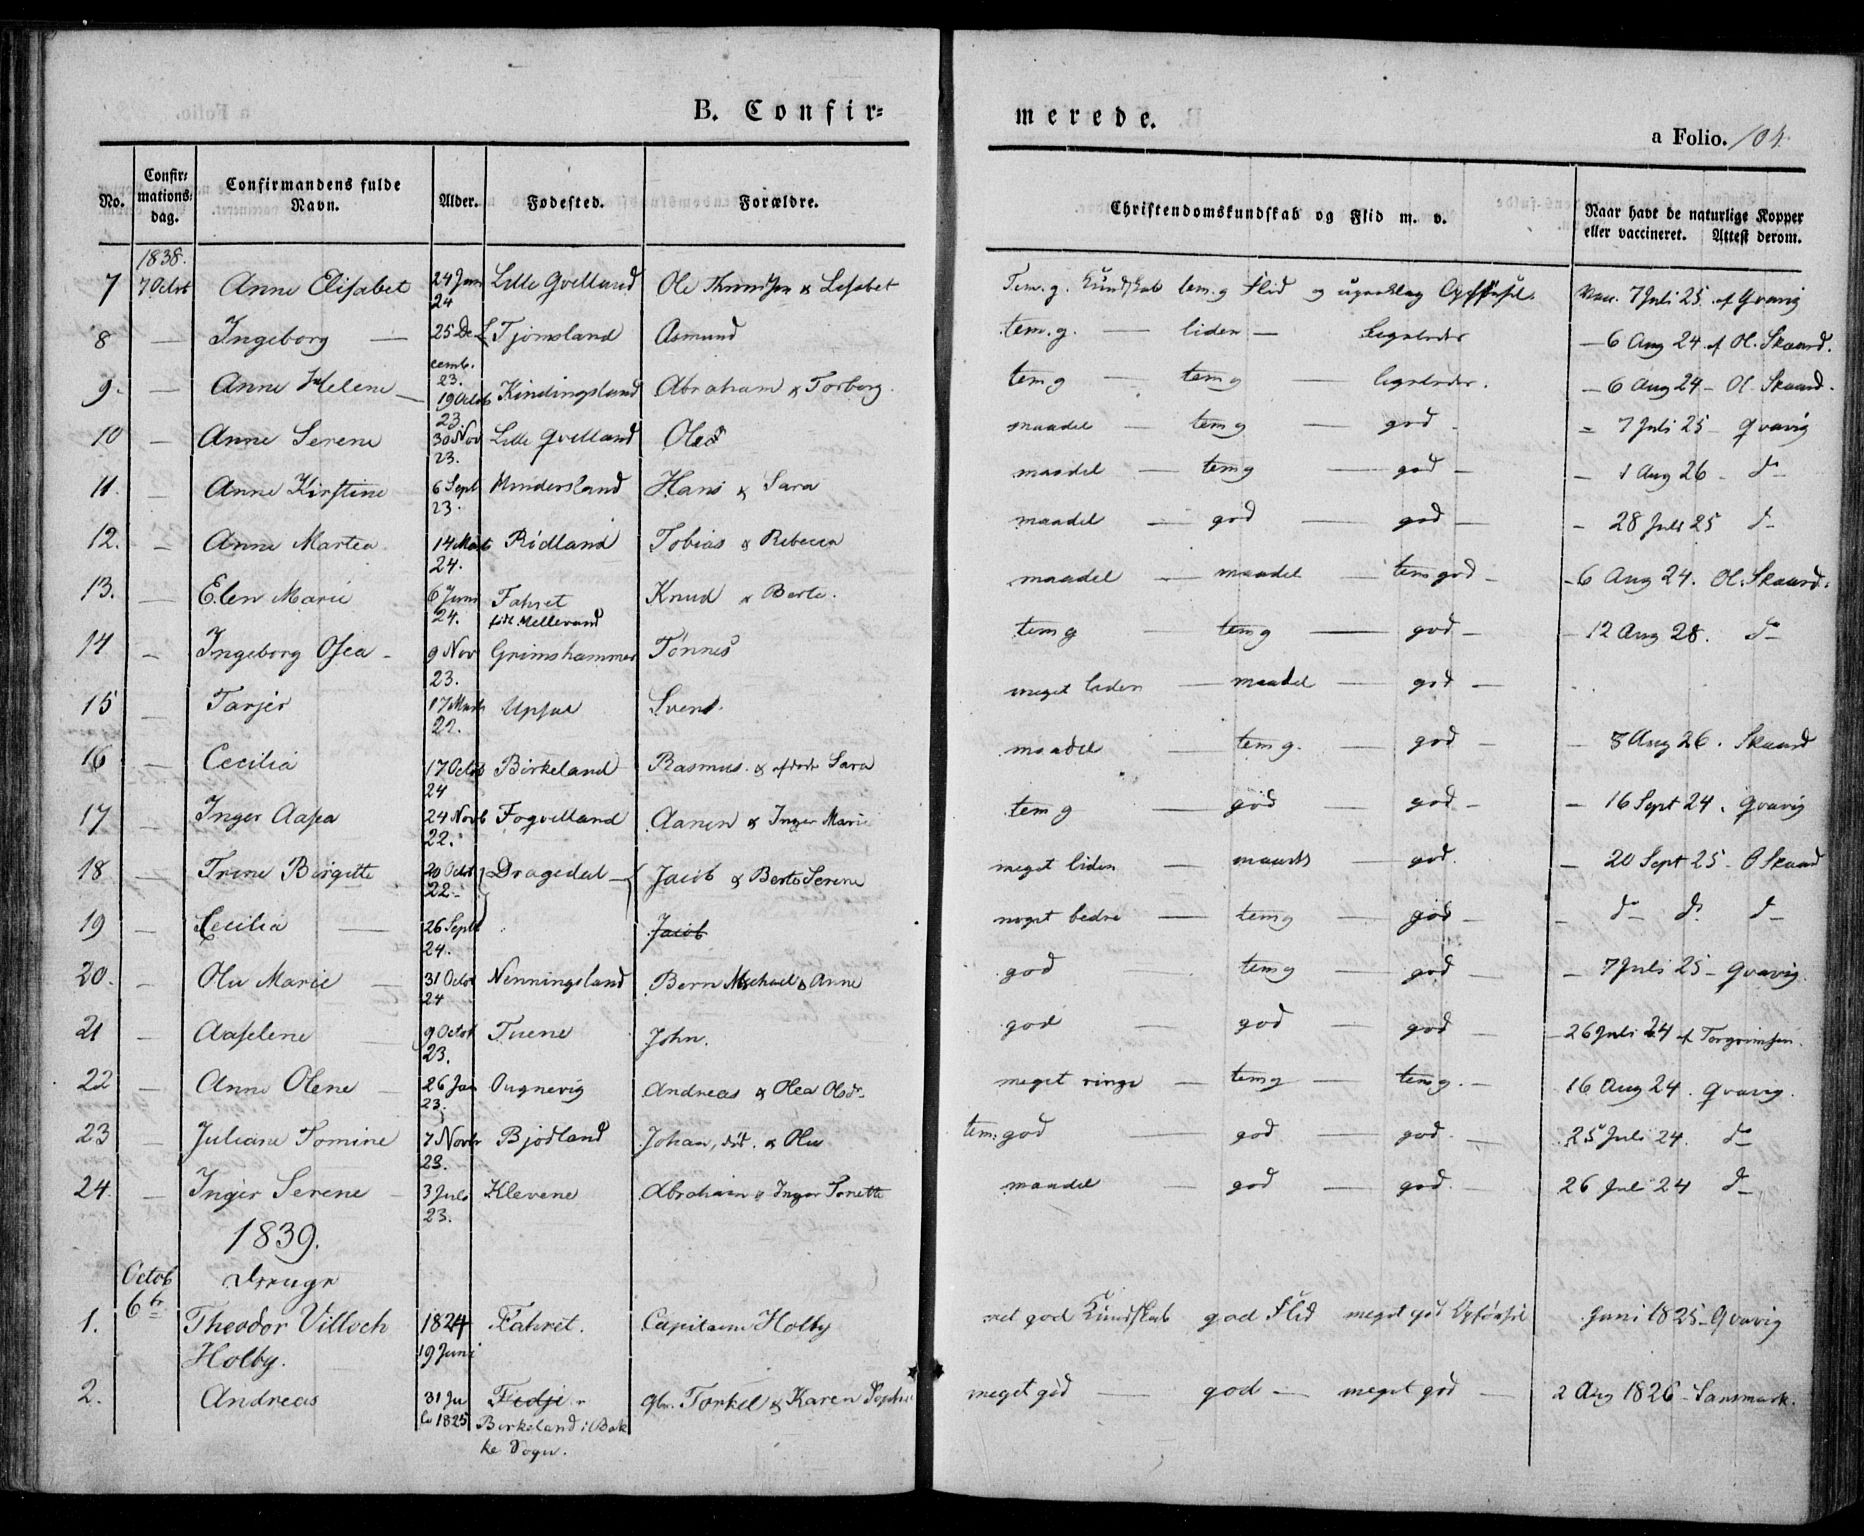 B. Confir=
merede.
a Folio. 104.
No. Confir=mations=dag. Confirmandens fulde Navn. Alder. Fødested. Forældre. Christendomskundskab og Flid m. v. Naar havt de naturlige Kopper eller vaccineret. Attest derom.
1838.
7 7 Octob Anne Elisabet 24 Jan 24 Lille Qvelland Ole & Lisabet Tem. g. Kundskab tem. g Flid og Vacc. 7 Juli 25 af Qvavig
8 — Ingeborg — 25 Decemb. 23. Tjomsland Asmund tem. g. — liden — ligeledes — 6 Aug 24 af Ol. Skaard.
9. — Anne Helene — 19 Octob 23 Kindingsland Abraham & Torborg tem g — tem g — ligeledes. — 6 Aug 24 — Ol. Skaard.
10 — Anne Serene 30 Nov 23. Lille Qvelland Ole maadel — tem g — god — 7 Juli 25 — Qvavig
11. — Anne Kirstine 6 Sept 23. Mindersland Hans & Sara maadel — tem g — god — 1 Aug 26 — do
12. — Anne Martea 14 Marts 24. Rødland Tobias & Rebecca maadel — god — god — 28 Juli 25 do
13. — Elen Marie 6 Juni 24. Fahret Mellevand Knud & Berte. maadel — maadel — tem god — 6 Aug 24. Ol. Skaard.
14 — Ingeborg Osea — 9 Nov 23. Grimshammer Tønnes tem g — tem g — god — 12 Aug 28. do
15 — Tarjer 17 Marts 22. Upsal Svend. meget liden — maadel — god —
16 — Cecilia 17 Octob 24 Birkeland Rasmus & afdøde Sara maadel — tem g. — god — 8 Aug 26. Skaard
17 — Inger Aasa 24 Novb 22. Fogvelland Aanen & Inger Marie tem g — god — god — 16 Sept 24. Qvavig
18 — Trine Birgitte 20 Octob 22 Dragedal — Jacob & Berte Serene meget liden — maadel — god. — 20 Sept 25 — O Skaard
19 — Cecilia — 26 Sept 24. Jacob noget bedre — tem g — god — do do do
20. — Olu Marie — 31 Octob 24 Nenningsland Bern Michael & Anne god tem g — god — 7 Juli 25 — Qvavig
21 — Aaselene 9 Octob 23. Tuene John. god — god — god — 26 Juli 24 af Torgrimsen.
22 — Anne Olene — 26 Jan 23. Ougnevig Andreas & Olea Olsd. meget ringe — tem g — tem g. — 16 Aug 24. Qvavig.
23 — Juliane Tomine 7 Novbr 23. Bjødland Johan, død. & Olu tem. god — god — god. — 25 Juli 24. do
24. — Inger Serene — 3 Juli 23. Klevene Abraham & Inger Tonette maadel — god — god. — 26 Jul 24 do
1839.
Octob 6te Drenge
1. Theodor Villoch Holby. 1824 19 Juni Fahret. Capitaine Holby met god Kundskab god Flid meget god Opførsel Juni 1825 — Qvavig
2. Andreas 31 Juli 1825 Fedje Birkeland i Bakke Sogn. Gbr. Torkel & Karen Sophie meget god — god — meget god — 2 Aug 1826 — Sansmark.